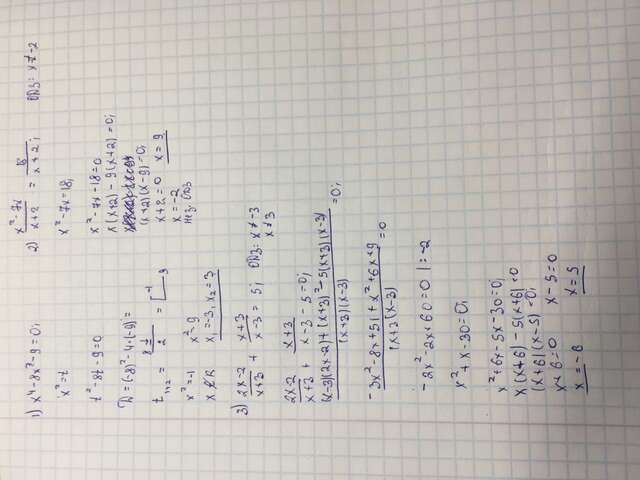 1) x⁴-8x²-9=0;
x²=t
t²-8t-9=0
D=(-8)²-4·(-9)=
x²=-1 x²=9
x=-3, x₂=3
2) x²-7x/x+2 = 18/x+2; ОДЗ: x≠-2
x²-7x=18;
x²-7x-18=0
x(x+2)-9(x+2)=0;
(x+2)(x-9)=0;
x+2=0 x=9
x=-2
3) 2x-2/x+3 + x+3/x-3 = 5; ОДЗ: x≠-3
x≠3
2x-2/x+3 + x+3/x-3 -5=0;
(x-3)(2x-2)+(x+3)²-5(x+3)(x-3)/(x+3)(x-3) =0;
-3x²-8x+51+x²+6x+9/(x+3)(x-3) =0
-2x²-2x+60=0 |:-2
x²+x-30=0;
x²+6x-5x-30=0;
x(x+6)-5(x+6)=0
(x+6)(x-5)=0;
x+6=0 x-5=0
x=-6 x=5